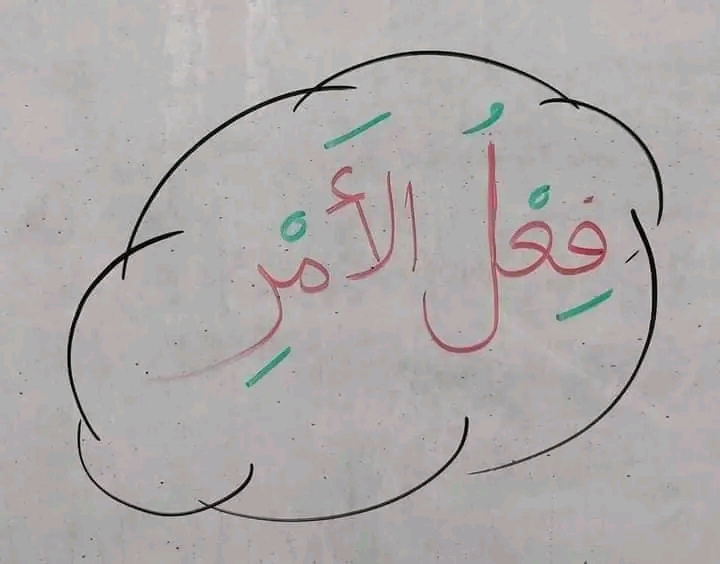 فِعْلُ الأَمْرِ